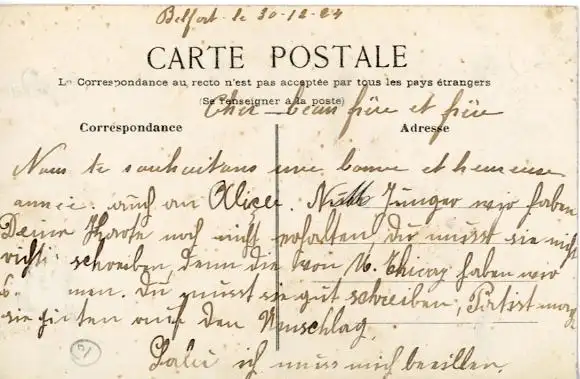 Belfort le 30-12-24
CARTE POSTALE
La Correspondance au recto n'est pas acceptée par tous les pays étrangers
(Se renseigner à la poste)
Cher beau frère et frère
Correspondance
Adresse
Nous te souhaitons une bonne et heureuse
annee. auch an Alice. Junger wir haben
Deine Karte noch nicht erhalten, Du musst sie nicht
richt schreiben, denn die von N. Thierry haben wir
men. Du musst sie gut schreiben,
sie hinten auf den Umschlag.
Salü ich muss mich beeillen.